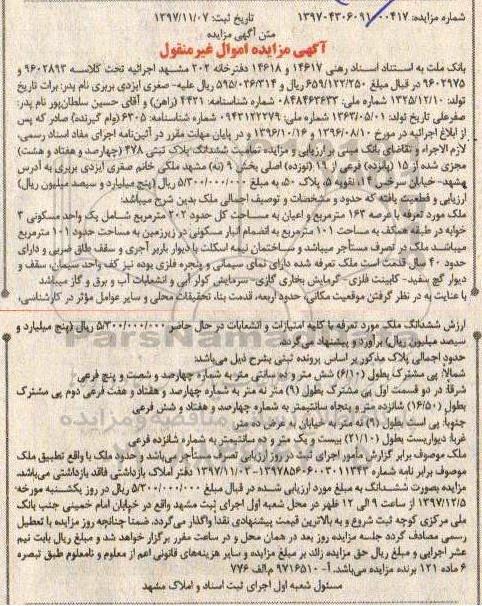 شماره مزایده: ۱۳۹۷۰۴۳۰۶۰۹۱۰۰۰۴۱۷ تاریخ ثبت: ۱۳۹۷/۱۱/۰۷
متن آگهی مزایده
آگهی مزایده اموال غیرمنقول
بانک ملت به استناد اسناد رهنی ۱۴۶۱۷ و ۱۴۶۱۸ دفترخانه ۲۰۲ مشهد اجرائیه تحت کلاسه ۹۶۰۲۸۹۳ و
۹۶۰۲۹۷۵ در قبال مبلغ ۶۵۹/۱۲۲/۲۵۰ ریال و ۵۹۵/۰۳۶/۳۱۴ ریال علیه- صغری ایزدی بریری نام پدر: برات تاریخ
تولد: ۱۳۳۵/۱۲/۱۰ شماره ملی: ۰۸۴۸۴۶۳۶۳۳ شماره شناسنامه: ۴۴۲۱ (راهن) و آقای حسین سلطان‌پور نام پدر:
صفرعلی تاریخ تولد: ۱۳۶۳/۰۵/۰۱ شماره ملی: ۰۹۴۳۱۲۲۲۷۹ شماره شناسنامه: ۶۳۰۵ (وام گیرنده) صادره که پس
از ابلاغ اجرائیه در مورخ ۱۳۹۶/۰۸/۱۰ و ۱۳۹۶/۱۰/۱۶ و در پایان مهلت مقرر در آئین‌نامه اجرای مفاد اسناد رسمی،
لازم الاجراء و تقاضای بانک مبنی بر ارزیابی و مزایده تمامیت ششدانگ پلاک ثبتی ۴۷۸ (چهارصد و هفتاد و هشت)
مجزی شده از ۱۵ (پانزده) فرعی از ۱۹ (نوزده) اصلی بخش ۹ (نه) مشهد ملکی خانم صغری ایزدی بریری به آدرس
مشهد- خیابان سرخس ۱۴، تقویه ۵، پلاک ۵۰، به مبلغ ۵/۳۰۰/۰۰۰/۰۰۰ ریال (پنج میلیارد و سیصد میلیون ریال)
ارزیابی و قطعیت یافته که حدود و مشخصات و توصیف اجمالی ملک بدین شرح میباشد:
ملک مورد تعرفه با عرصه ۱۶۳ مترمربع و اعیان به مساحت کل حدود ۲۰۲ مترمربع شامل یک واحد مسکونی ۳
خوابه در طبقه همکف به مساحت ۱۰۱ مترمربع به انضمام انبار مسکونی در زیرزمین به مساحت حدود ۱۰۱ مترمربع
میباشد ملک در تصرف مستأجر میباشد و ساختمان نیمه اسکلت با دیوار باربر آجری و سقف طاق ضربی و دارای
حدود ۴۰ سال قدمت است ملک تعرفه شده دارای نمای سیمانی و پنجره فلزی بوده نیز کف واحد سیمان، سقف و
دیوار گچ سفید- کابینت فلزی- گرمایش بخاری گازی- سرمایش کولر آبی و انشعابات آب و برق و گاز میباشد
با عنایت به در نظر گرفتن موقعیت مکانی، حدود اربعه، قدمت بنا، تحقیقات محلی و سایر عوامل مؤثر در کارشناسی،
ارزش ششدانگ ملک مورد تعرفه با کلیه امتیازات و انشعابات در حال حاضر ۵/۳۰۰/۰۰۰/۰۰۰ ریال (پنج میلیارد و
سیصد میلیون ریال) برآورد و پیشنهاد می‌گردد.
حدود اجمالی پلاک مذکور بر اساس پرونده ثبتی بشرح ذیل می‌باشد:
شمالاً: پی مشترک بطول (۶/۱۰) شش متر و ده سانتی متر به شماره چهارصد و شصت و پنج فرعی
شرقاً: در دو قسمت اول پی مشترک بطول (۹) متر نه متر به شماره چهارصد و هفتاد و هفت فرعی دوم پی مشترک
بطول (۱۶/۵۰) شانزده متر و پنجاه سانتیمتر به شماره چهارصد و هفتاد و شش فرعی
جنوباً: پی است بطول (۹) نه متر به خیابان به عرض ده متر
غرباً: دیواریست بطول (۲۱/۱۰) بیست و یک متر و ده سانتیمتر به شماره شانزده فرعی
ملک موصوف برابر گزارش مأمور اجرای ثبت در روز ارزیابی تصرف مستأجر می‌باشد و حدود ملک با واقع تطبیق ملک
موصوف برابر نامه شماره ۱۳۹۷۸۵۶۰۶۰۰۳۰۱۱۳۴۳-۱۳۹۷/۱۱/۰۳ دفتر املاک بازداشتی فاقد بازداشتی می‌باشد.
مزایده بصورت ششدانگ به مبلغ مورد ارزیابی شده در قبال مبلغ ۵/۳۰۰/۰۰۰/۰۰۰ ریال در روز یکشنبه مورخه
۱۳۹۷/۱۲/۵ از ساعت ۹ الی ۱۲ ظهر در محل شعبه اول اجرای ثبت مشهد واقع در خیابان امام خمینی جنب بانک
ملی مرکزی کوچه ثبت شروع و به بالاترین قیمت پیشنهادی نقدا واگذار می‌گردد. ضمنا چنانچه روز مزایده با تعطیل
رسمی مصادف گردد جلسه مزایده روز بعد در همان محل و در ساعت مقرر برگزار خواهد شد و مبلغ ریال بابت نیم
عشر اجرایی و مبلغ ریال حق مزایده زائد بر مبلغ مزایده و سایر هزینه‌های قانونی اعم از معلوم و نامعلوم طبق تبصره
۶ ماده ۱۲۱ برنده مزایده می‌باشد. آ- ۹۷۱۶۵۱۰ م‌الف ۷۷۶
مسئول شعبه اول اجرای ثبت اسناد و املاک مشهد